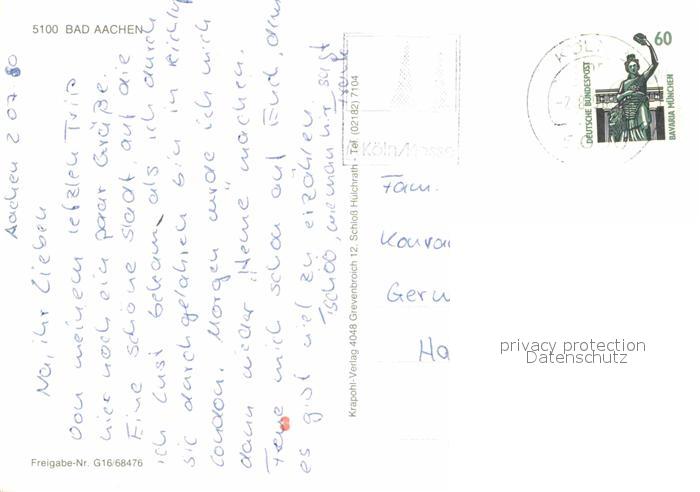 5100 BAD AACHEN
Aachen 2 07 90
Na, ihr Lieben
Von meinem letzten Trip
hier noch ein paar Grüße.
Eine schöne Stadt, auf die
ich Lust bekam, als ich durch
sie durchgefahren bin in Richtg
London. Morgen werde ich mich
dann wieder "Heme" machen.
Freue mich schon auf Euch, denn
es gibt viel zu erzählen.
Tschöö, wie man hir sagt
Freigabe-Nr. G16/68476
Krapohl-Verlag 4048 Grevenbroich 12, Schloß Hülchrath - Tel. (02182) 7104
Köln/Messe
KÖLN
60
DEUTSCHE BUNDESPOST
BAVARIA MÜNCHEN
Fam.
Konra
Ger
Ha
privacy protection
Datenschutz